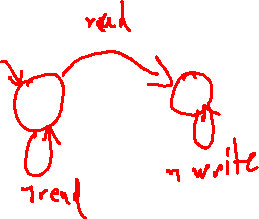 read
¬read
¬ write